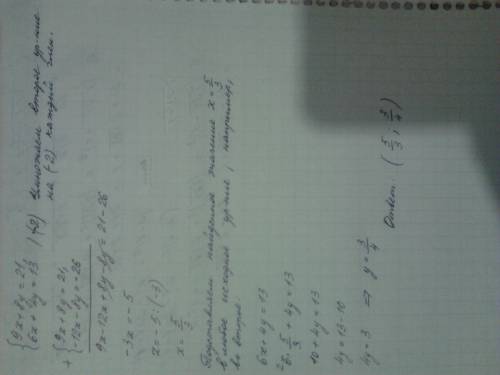 { 9x + 8y = 21,
6x + 4y = 13 | (-2) умножаем второе ур-ние
на (-2) каждый член.
+ { 9x + 8y = 21,
-12x - 8y = -26
9x - 12x + 8y - 8y = 21 - 26
-3x = -5
x = -5 : (-3)
x = 5/3
Подставляем найденное значение x = 5/3
в любое исходное ур-ние, например,
во второе.
6x + 4y = 13
²6 · 5/3 + 4y = 13
10 + 4y = 13
4y = 13 - 10
4y = 3 ⇒ y = 3/4
Ответ: (5/3 ; 3/4)